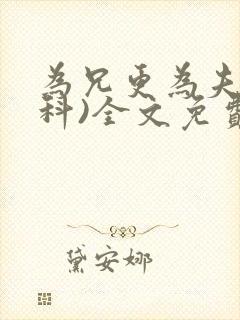 為兄更為夫
科)全文免費
黛安娜